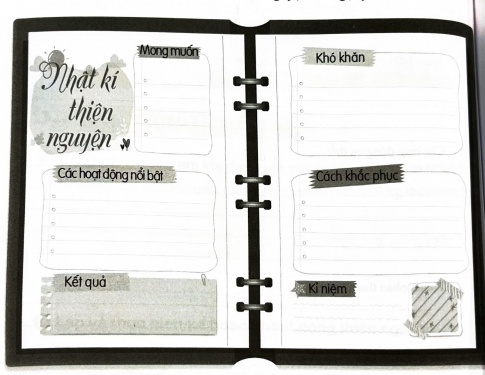 Nhật kí
thiện
nguyện
Mong muốn
Các hoạt động nổi bật
Kết quả
Khó khăn
Cách khắc phục
Kỉ niệm